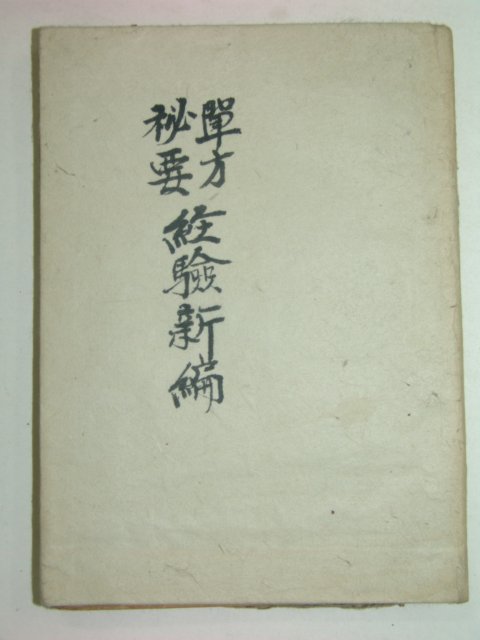 單方
秘要
経驗新編